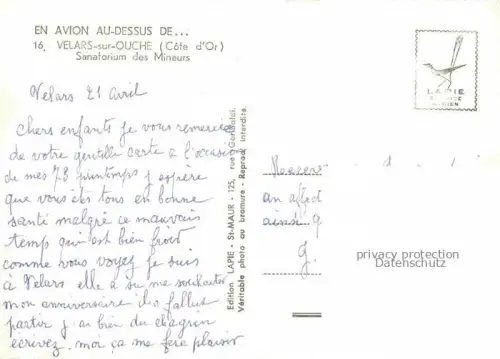 EN AVION AU-DESSUS DE...
16. VELARS-sur-OUCHE (Côte d'Or)
Sanatorium des Mineurs
Velars 21 Avril
chers enfants je vous remercie
de votre gentille carte a l'occasion
de mes 73 printemps j espère
que vous êtes tous en bonne
santé malgré ce mauvais
temp qui est bien froid
comme vous voyez je suis
à Velars elle a su me souhaiter
mon anniversaire il a fallut
partir j ai bien du chagrin
écrivez. moi ça me fera plaisir
Edition LAPIE - St-MAUR - 125, rue Garibaldi.
Véritable photo au bromure - Reprod. interdite.
LAPIE
Recev
an affect
ainsi q
G.
privacy protection
Datenschutz